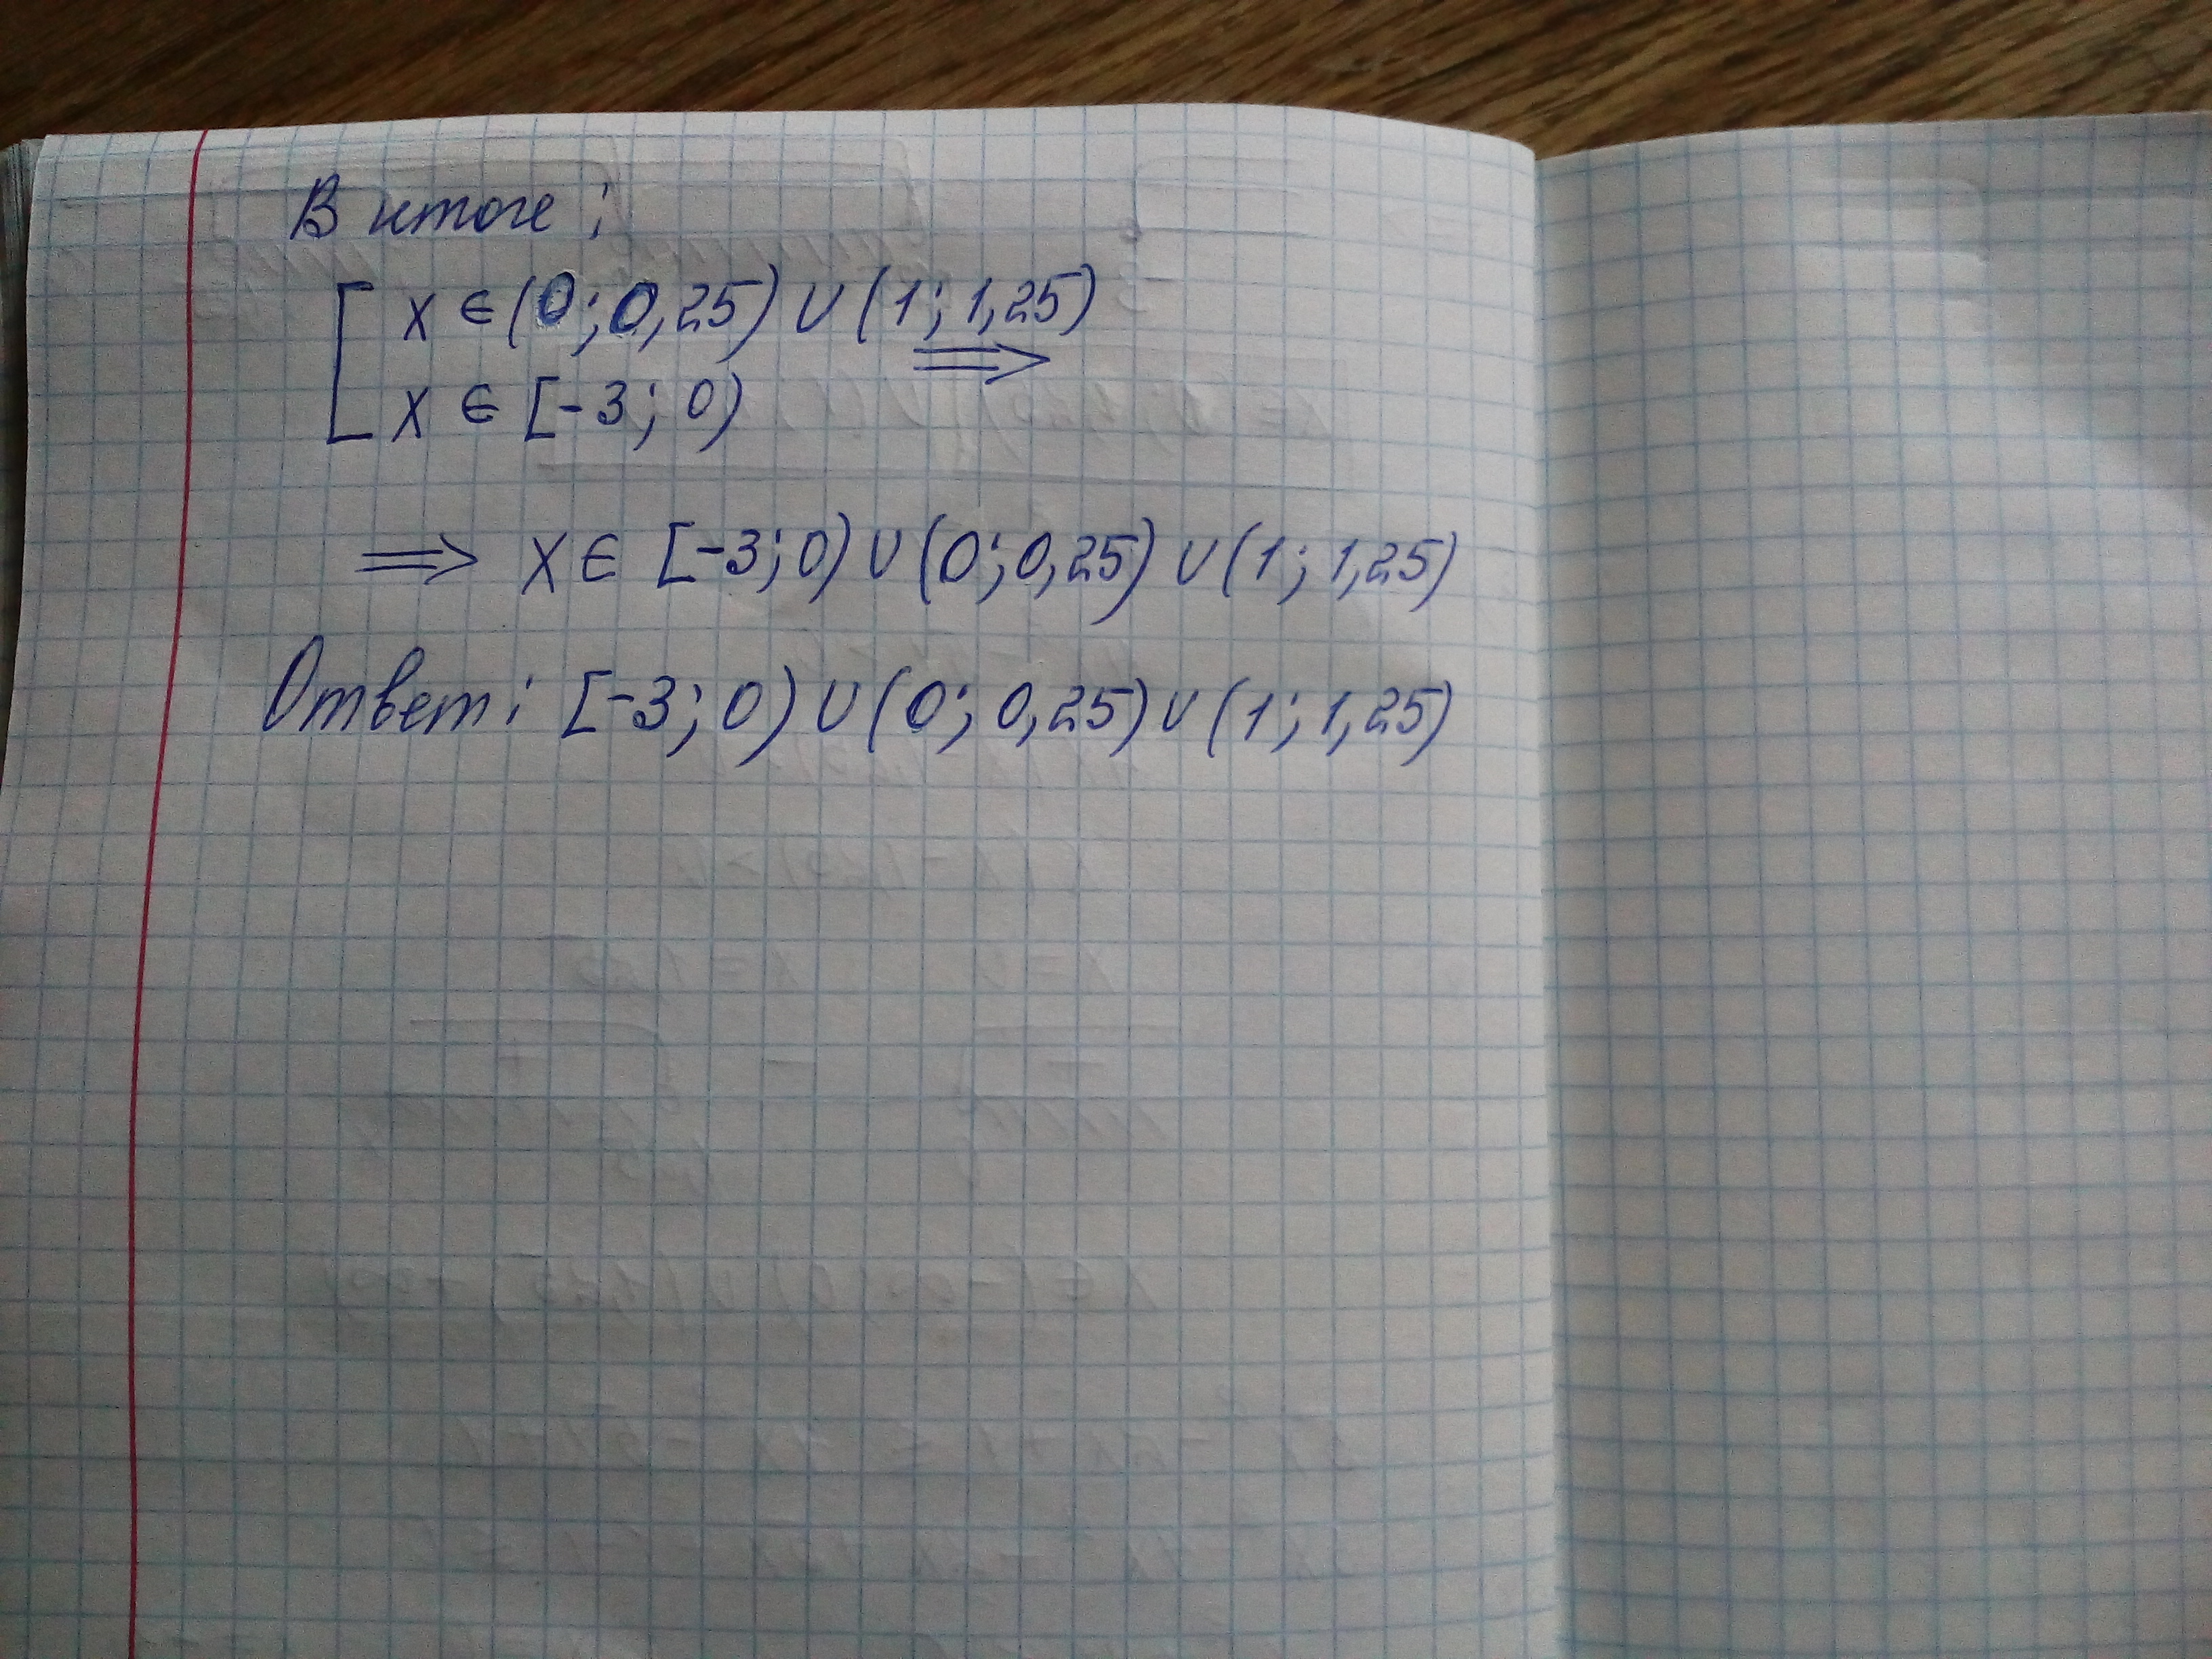 В итоге:
[ x ∈ (0; 0,25) ∪ (1; 1,25)
x ∈ [-3; 0) ⟹
⟹ x ∈ [-3; 0) ∪ (0; 0,25) ∪ (1; 1,25)
Ответ: [-3; 0) ∪ (0; 0,25) ∪ (1; 1,25)